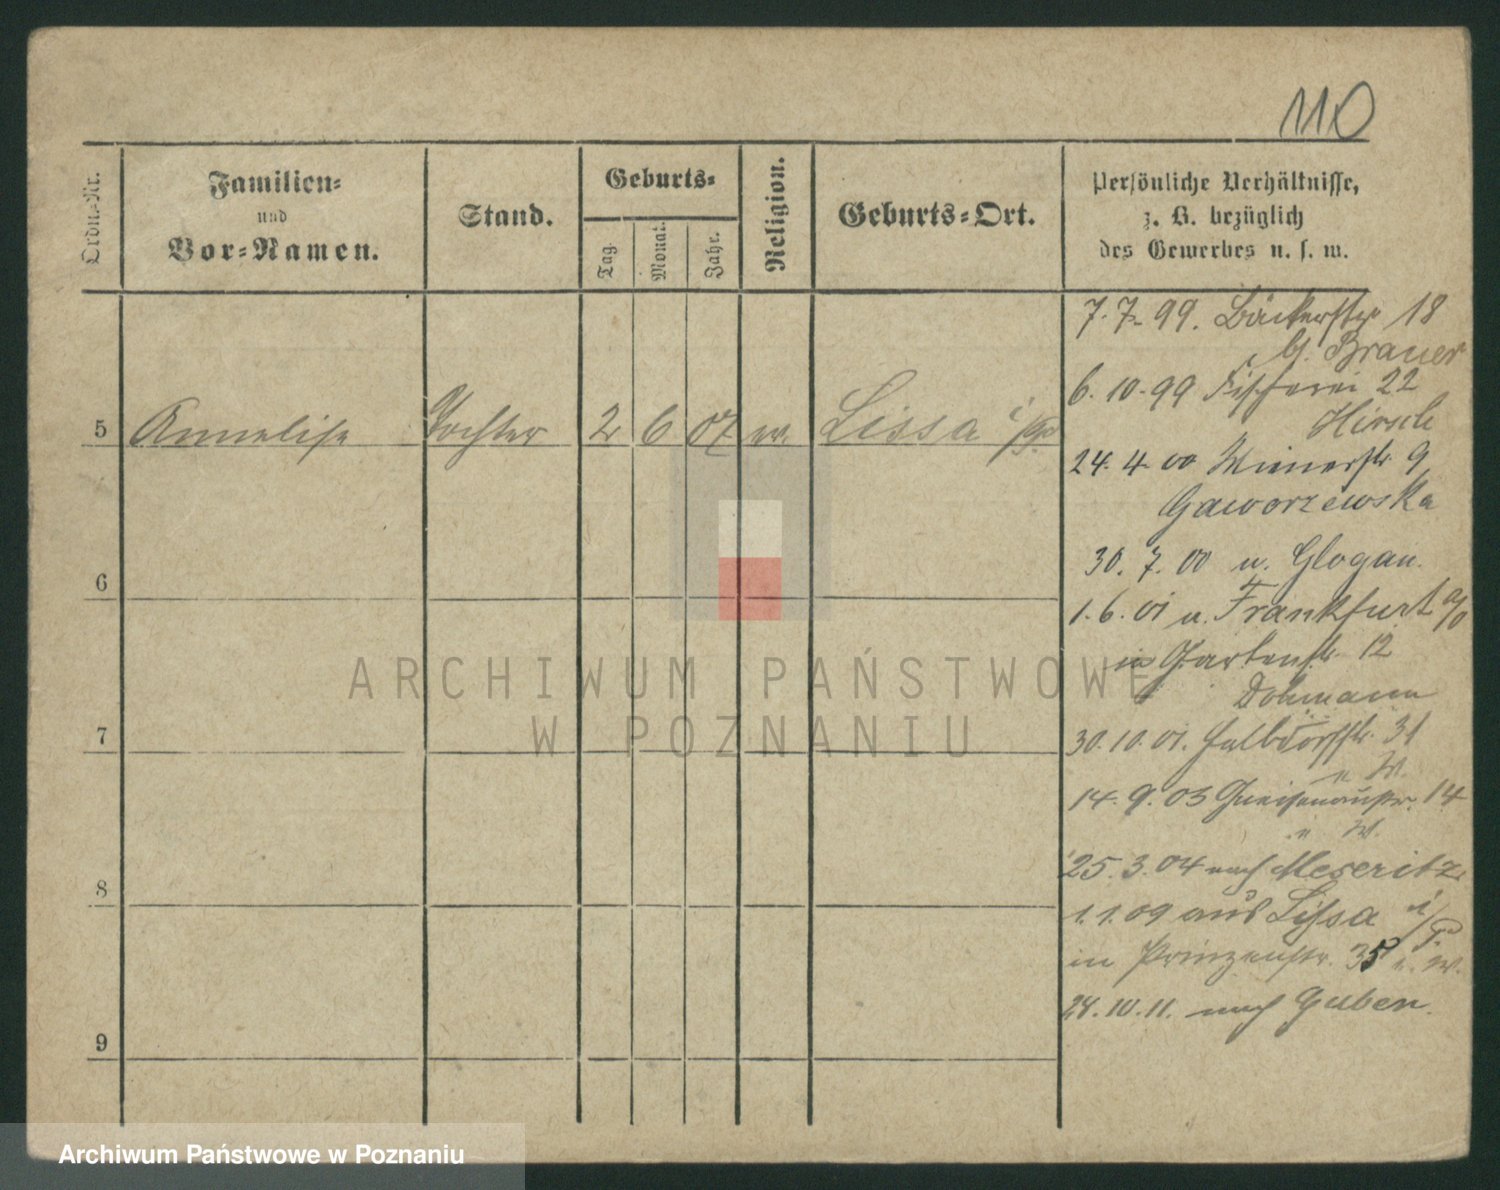 110
Ordn.-Nr.
Familien-
und
Vor-Namen.
Stand.
Geburts-
Tag.
Monat.
Jahr.
Religion.
Geburts-Ort.
Persönliche Verhältnisse,
z. B. bezüglich
des Gewerbes u. s. w.
5 Annelise Tochter 2 6 07 Lissa i/P.
6
7
8
9
7.7.99. Bäckerstr 18
b/. Brauer
6.10.99 Fischerei 22
Hirsch
24.4.00 Wienerstr. 9
Gaworzewska
30.7.00 n. Glogau.
1.6.01 n. Frankfurt a/O
in Gartenstr. 12
Dohmann
30.10.01. 31
" W.
14.9.03 Gneisenaustr. 14
" W.
25.3.04 nach Meseritz
1.1.09 aus Lissa i/P.
in Prinzenstr. 35 e. W.
28.10.11. nach Guben.
ARCHIWUM PAŃSTWOWE
W POZNANIU
Archiwum Państwowe w Poznaniu